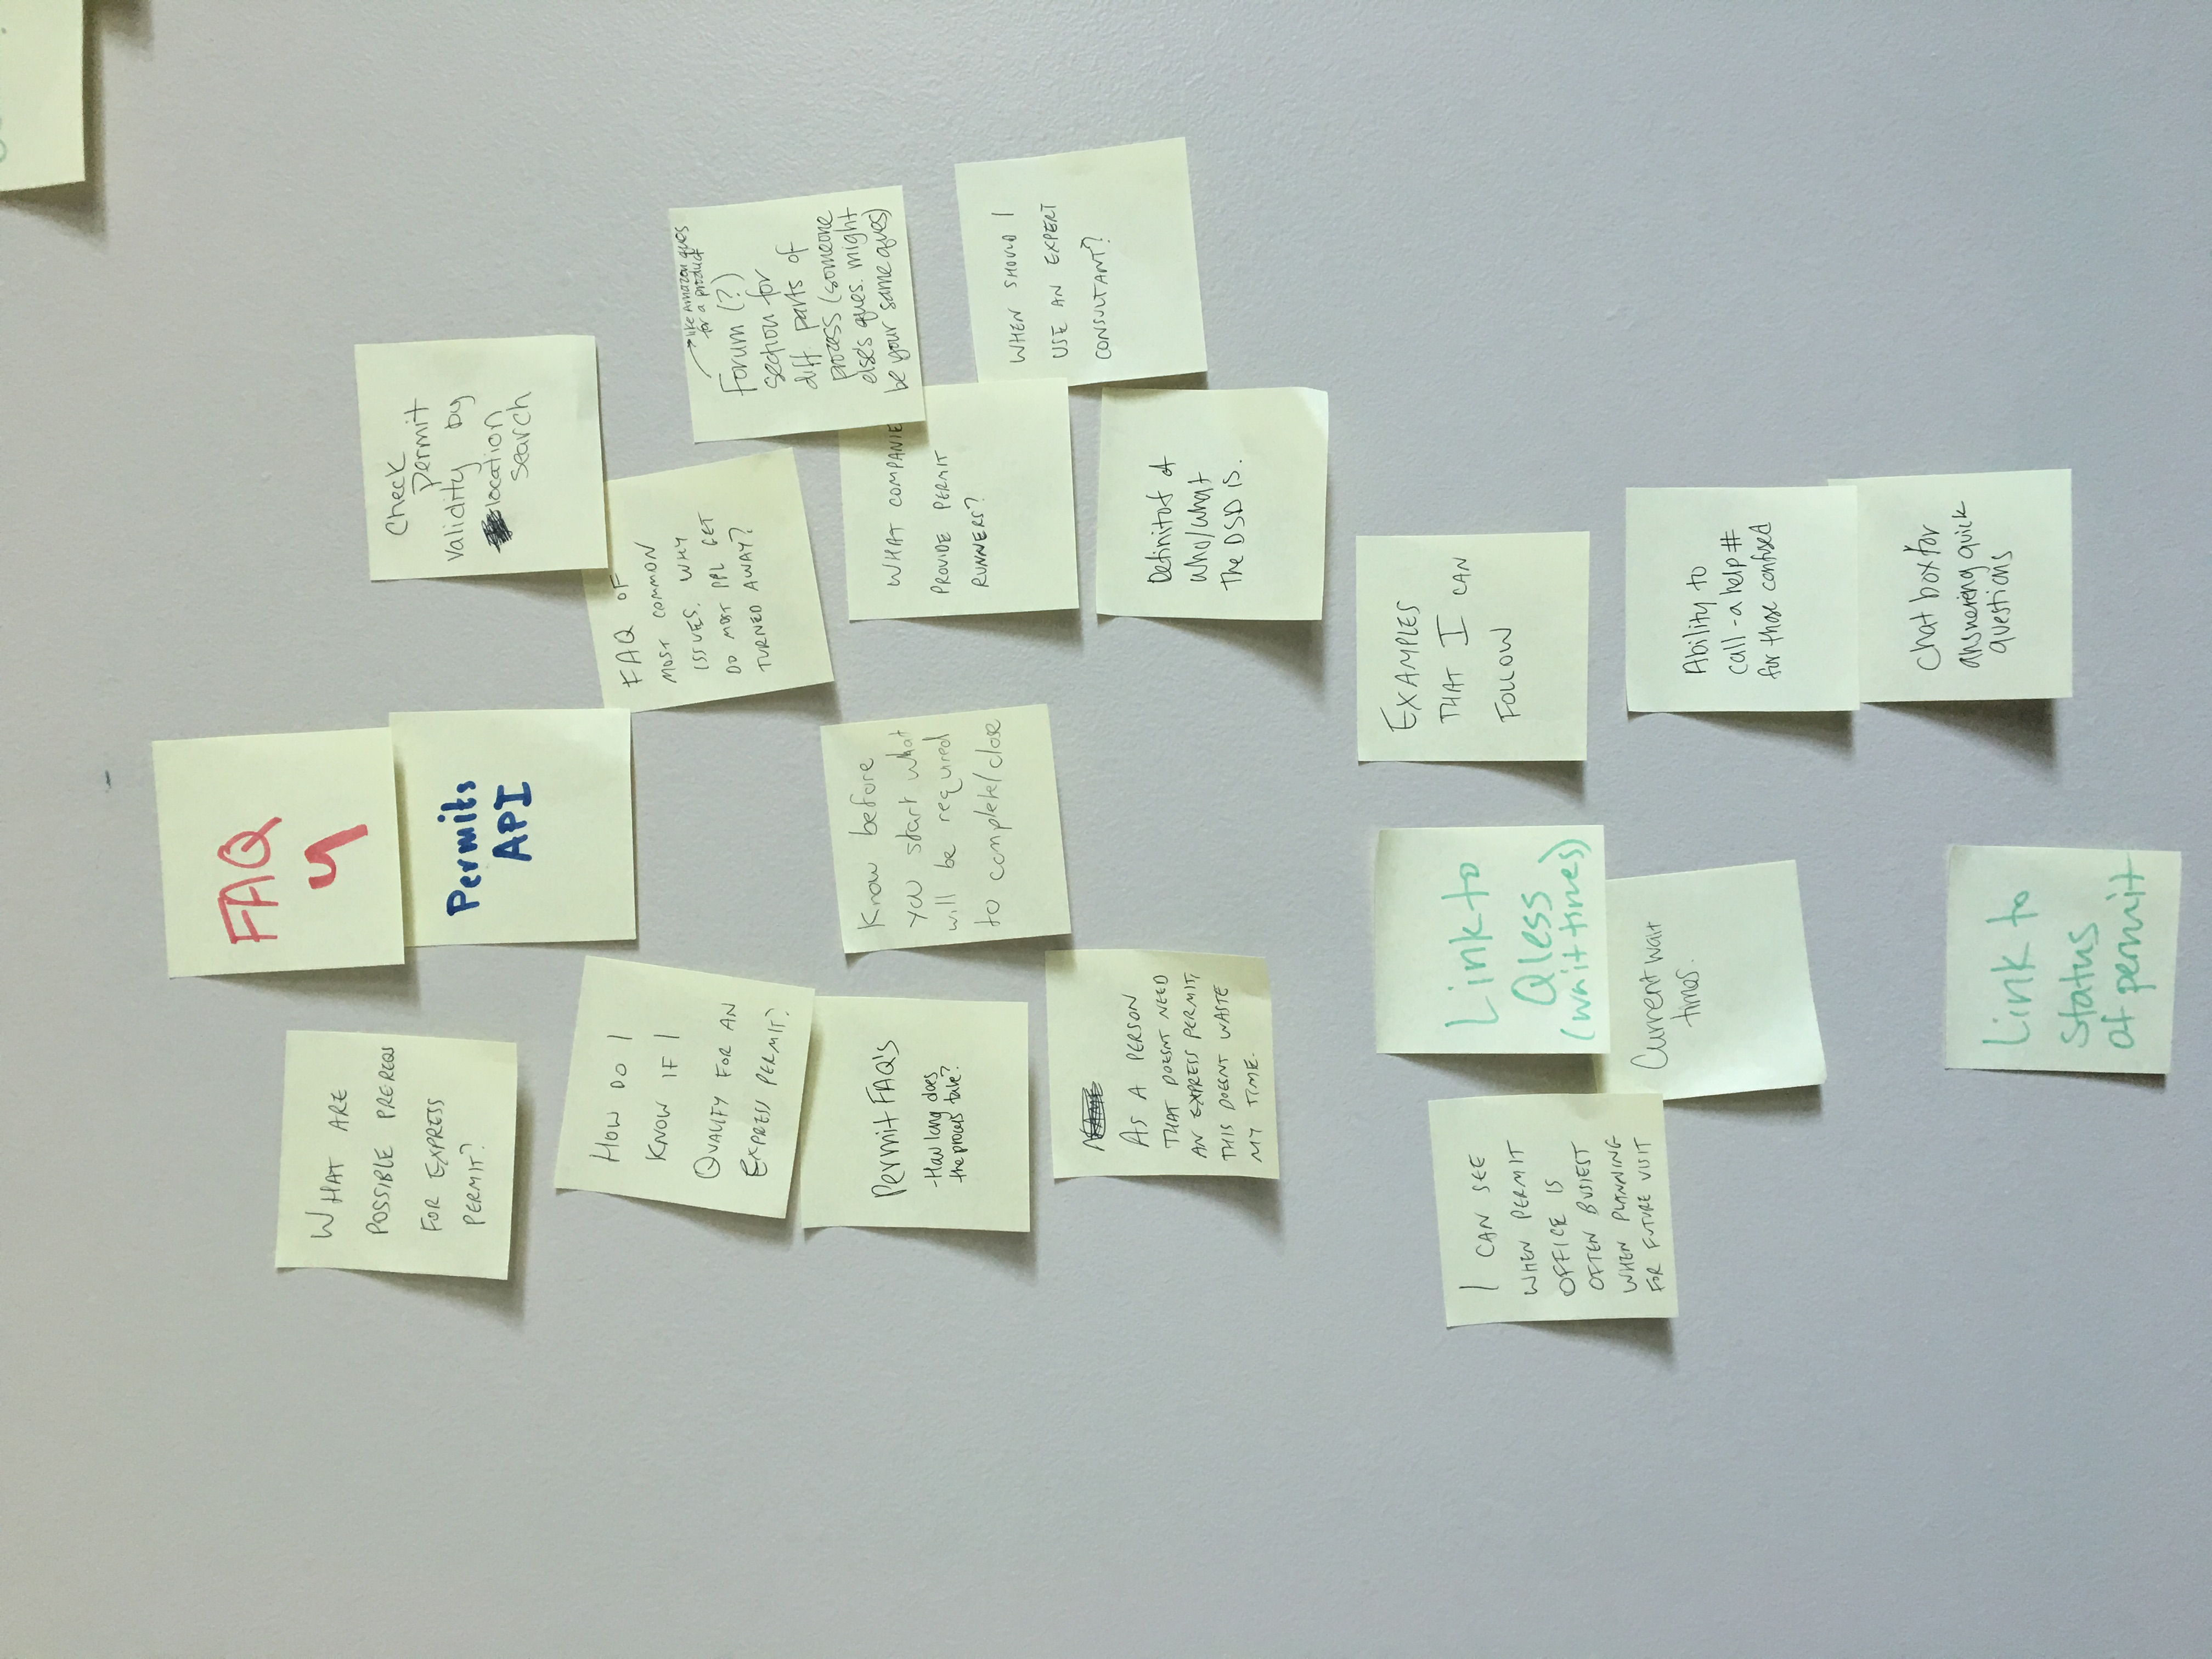 FAQ
4
WHAT ARE
POSSIBLE PREREQS
FOR EXPRESS
PERMIT?
Permits
API
Check
permit
validity by
location
search
HOW DO I
KNOW IF I
QUALIFY FOR AN
EXPRESS PERMIT?
FAQ OF
MOST COMMON
ISSUES. WHY
DO MOST PPL GET
TURNED AWAY?
like Amazon ques
for a product
Forum (?)
section for
diff. parts of
process (someone
else's ques. might
be your same ques)
Permit FAQ's
-How long does
the process take?
Know before
you start what
will be required
to complete/close
WHAT COMPANIE
PROVIDE PERMIT
RUNNERS?
WHEN SHOULD I
USE AN EXPERT
CONSULTANT?
AS A PERSON
THAT DOESNT NEED
AN EXPRESS PERMIT,
THIS DOESNT WASTE
MY TIME.
Definitof of
who/what
the DSD is.
EXAMPLES
THAT I CAN
FOLLOW
Link to
Qless
(wait times)
I CAN SEE
WHEN PERMIT
OFFICE IS
OFTEN BUSIEST
WHEN PLANNING
FOR FUTURE VISIT
Current wait
times.
Ability to
call -a help #
for those confused
Chat box for
answering quick
questions
Link to
status
of permit